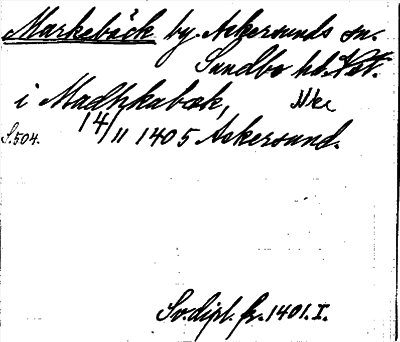 Markebäck by Askersunds sn.
Sundbo hd. Vst.
i Madhkabæk, Nke
S. 504. 14/11 1405 Askersund.
Sv. dipl. fr. 1401. I.